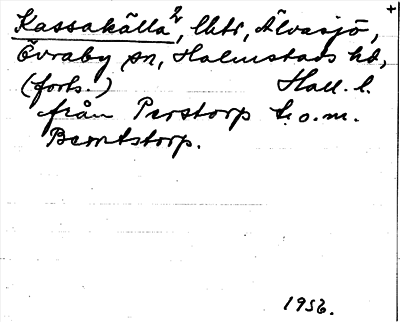 +
Kassakälla², lktr, Älvasjö,
Övraby sn, Halmstads hd,
(forts.) Hall. l.
från Perstorp t.o.m.
Berntstorp.
1956.